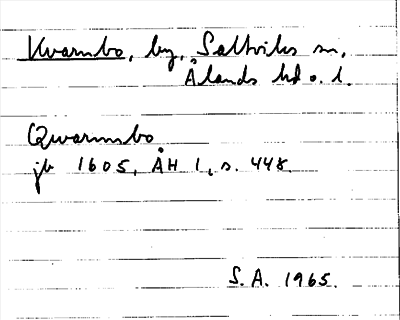 Kvarnbo, by, Saltviks sn,
Ålands hd o. l.
Qwarnnbo
jb 1605, ÅH 1, s. 448.
S. A. 1965.